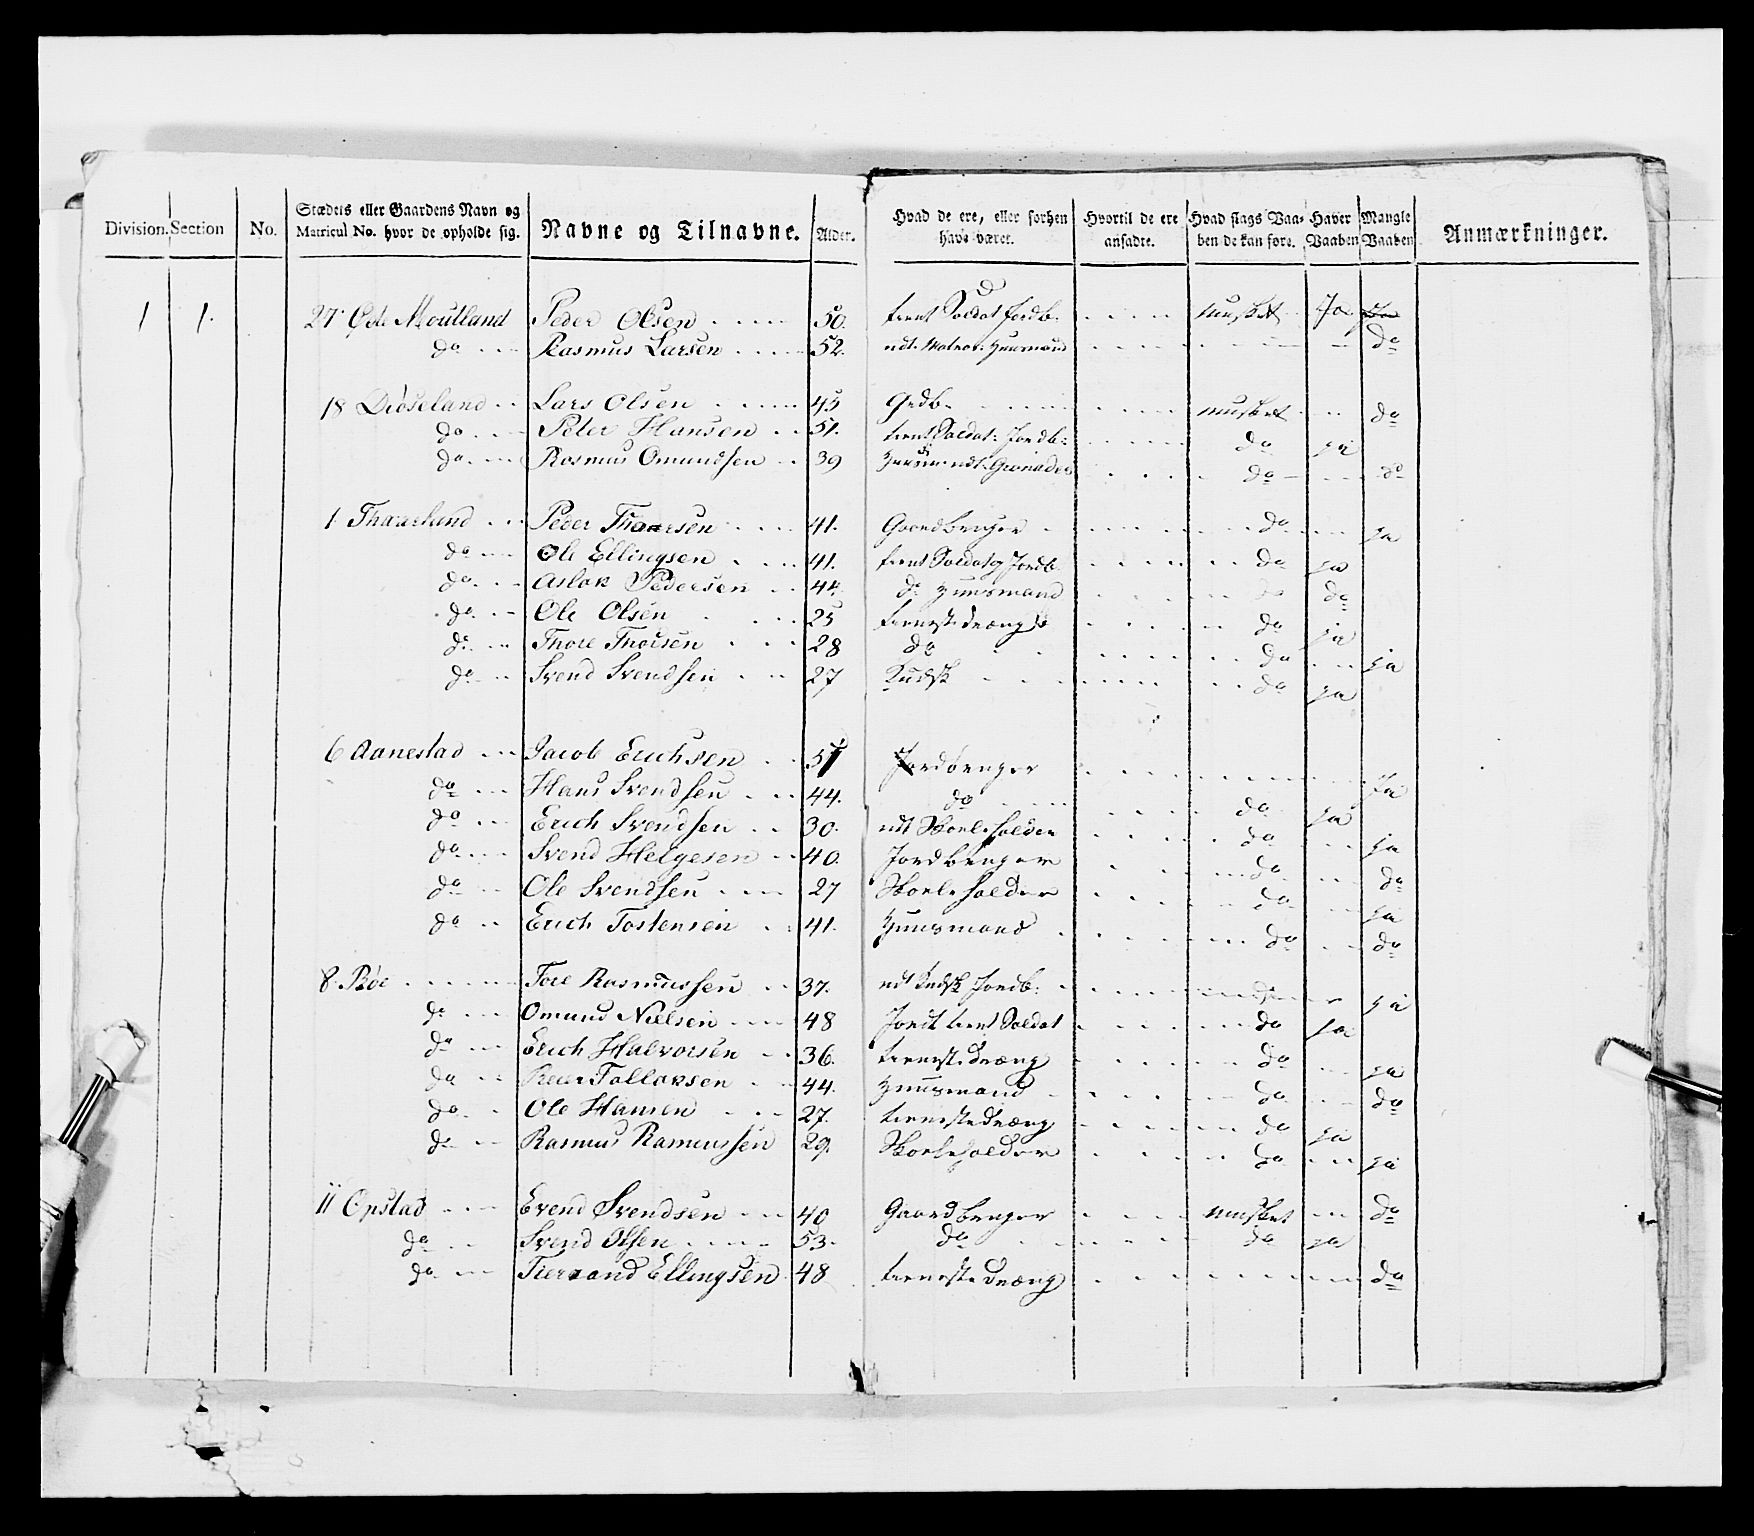 Division. Section No. Stædets eller Gaardens Navn og Matricul No. hvor de opholde sig. Navne og Tilnavne. Alder. Hvad de ere, eller forhen have været. Hvortil de ere ansadte. Hvad slags Vaaben de kan føre. Haver Vaaben Mangle Vaaben Anmærkninger.
1 1. 27 Moutland Peder Olsen 50. Soldat Jordb. musket Ja
do Rasmus Larsen 52. udt. Huusmand do
18 Diøseland Lars Olsen 45 Grdb. musket do
do Peter Hansen 51. Soldat Jordb: do ja
do Rasmus Omundsen 39 do do
1 Thaarland Peder Thoersen 41. Gaardbruger do ja
do Ole Ellingsen 41. Soldat Jordb. do ja
do Aslak Pedersen 44. do Huusmand do do
do Ole Olsen 25 tienestedræng do ja
do Thore Thoesen 28 do do ja
do Svend Svendsen 27 Kudsk do ja
6 Aanestad Jacob Erichsen Jordbruger Ja
do Hans Svendsen 44. do do ja
do Erich Svendsen 30. udt Skoeleholder do ja
do Svend Helgesen 40. Jordbruger do do
do Ole Svendsen 27 Skoeleholder do ja
do Erich Tostensen 41. Huusmand do do
8 Bøe Tore Rasmussen 37. udt Kudsk Jordb: do ja
do Omund Nielsen 48 Soldat do ja
do Erich Halvorsen 36. tienestedræng do ja
do Tollaksen 44. Huusmand do do
do Ole Hansen 27. tienestedræng do ja
do Rasmus Rasmussen 29. Skoeleholder do ja
11 Opstad Evend Svendsen 40 Gaardbruger musket do
do Svend Olsen 53. do do ja
do Ellingsen 48 tienestedræng do